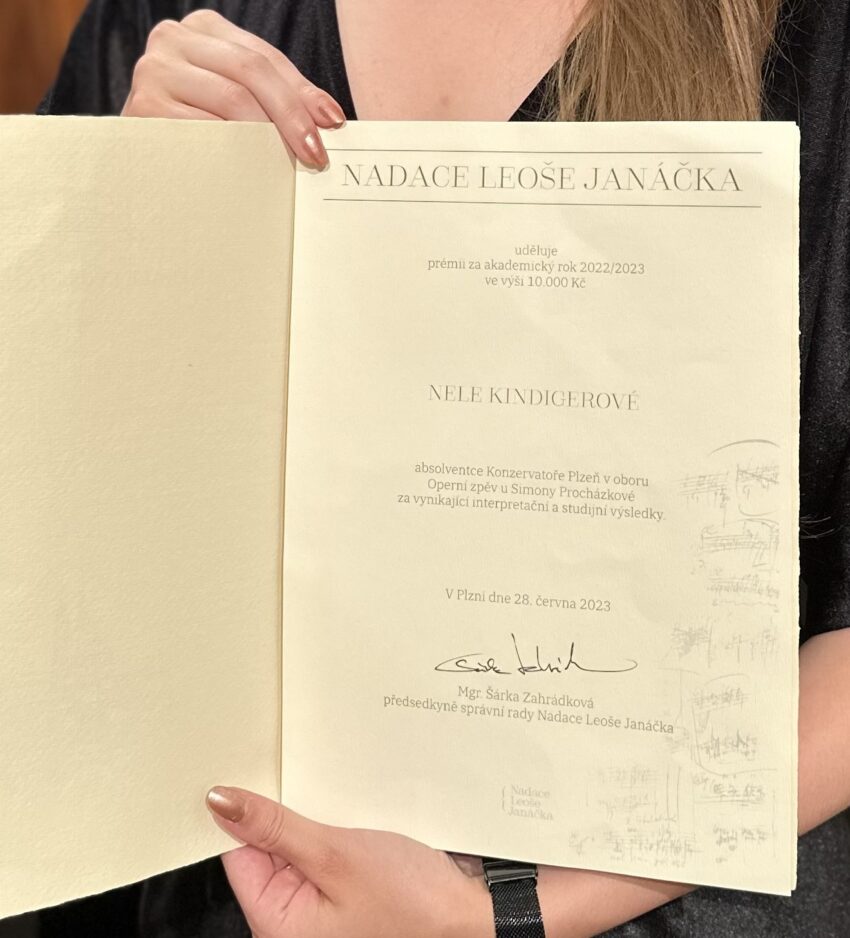 NADACE LEOŠE JANÁČKA
uděluje
prémii za akademický rok 2022/2023
ve výši 10.000 Kč
NELE KINDIGEROVÉ
absolventce Konzervatoře Plzeň v oboru
Operní zpěv u Simony Procházkové
za vynikající interpretační a studijní výsledky.
V Plzni dne 28. června 2023
Mgr. Šárka Zahrádková
předsedkyně správní rady Nadace Leoše Janáčka
Nadace
Leoše
Janáčka